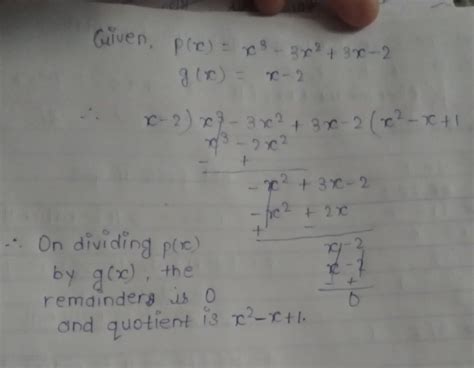 Given, p(x) = x³ - 3x² + 3x - 2
g(x) = x - 2
∴ x-2) x³ - 3x² + 3x - 2 (x² - x + 1
x³ - 2x²
- +
- x² + 3x - 2
- x² + 2x
+ -
x - 2
x - 2
- +
0
∴ On dividing p(x)
by g(x), the
remainders is 0
and quotient is x² - x + 1.